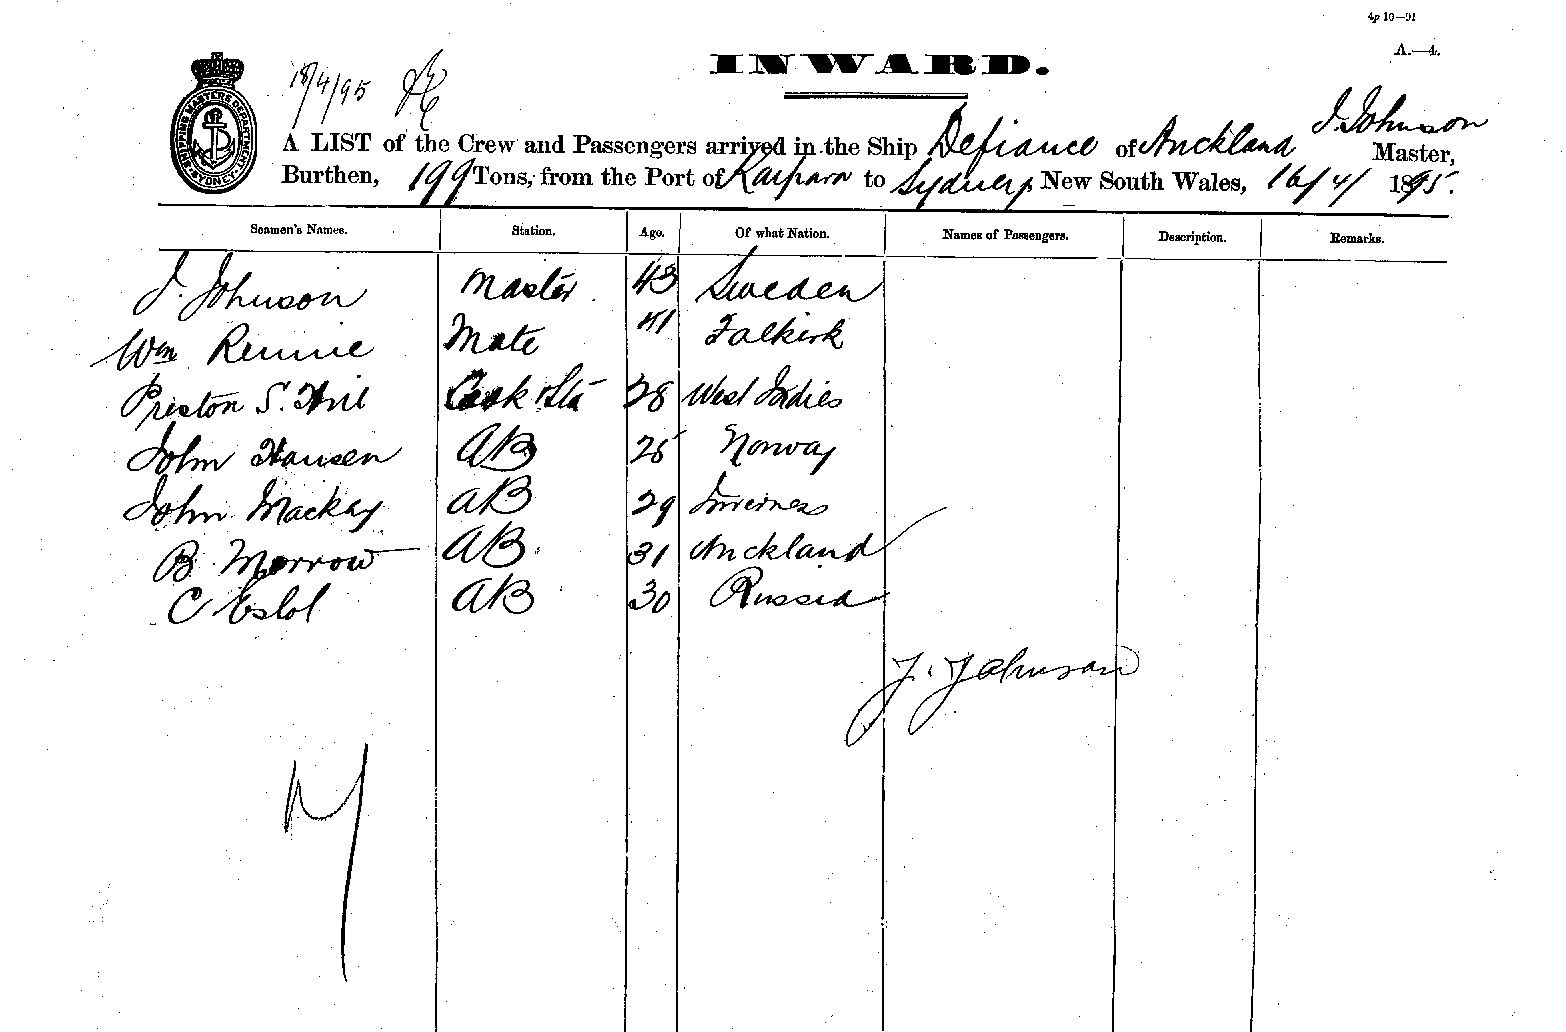 4p 10—91
A.—4.
INWARD.
18/4/95
SHIPPING MASTERS DEPARTMENT SYDNEY
J. Johnson
A LIST of the Crew and Passengers arrived in the Ship Defiance of Auckland Master,
Burthen, 199 Tons, from the Port of Kaipara to Sydney, New South Wales, 16/4/ 1895.
Seamen's Names. Station. Age. Of what Nation. Names of Passengers. Description. Remarks.
J. Johnson Master 43 Sweden
Wm Rennie Mate 41 Falkirk
Preston S. Hill Cook & Std 28 West Indies
John Hansen AB 25 Norway
John Mackay AB 29 Inverness
B Morrow AB 31 Auckland
C AB 30 Russia
J. Johnson